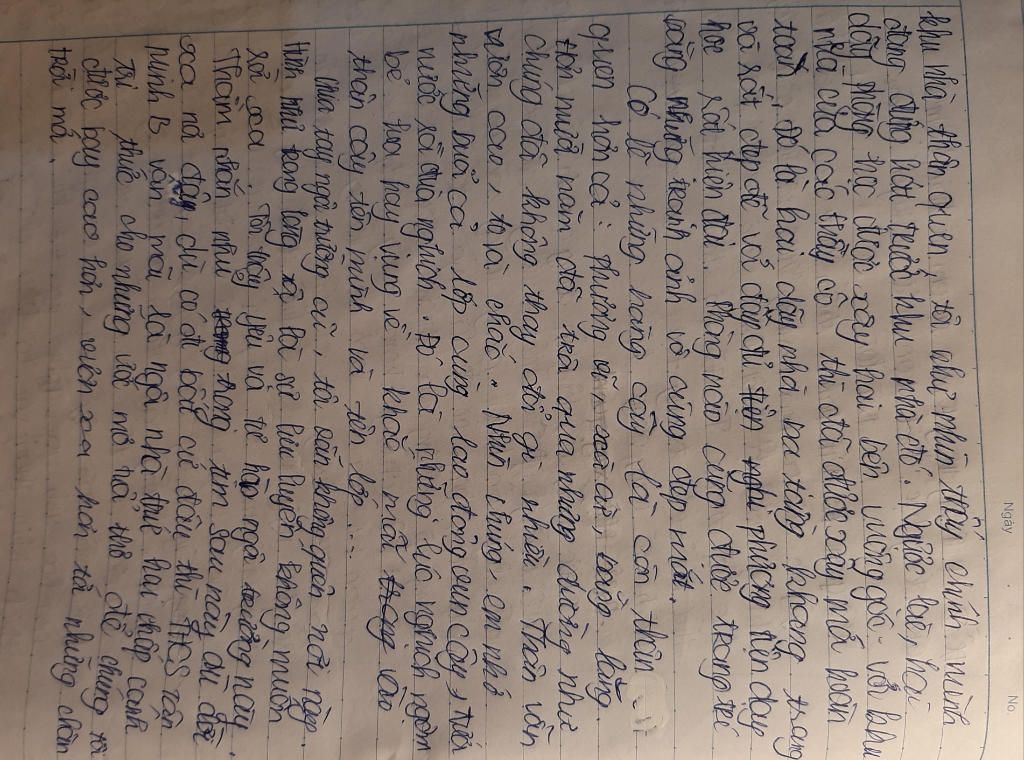 Ngày
No.
khu nhà thân quen, tôi như nhìn thấy chính mình
đang đứng hồi trước khu nhà đó. Ngược lại, hai
dãy phòng học được xây hai bên vuông góc với khu
nhà của các thầy cô thì đã được xây mới hoàn
toàn. Đó là hai dãy nhà ba tầng khang trang
và rất đẹp đẽ với đầy đủ phương tiện dạy
học rất hiện đại. Phòng nào cũng được trang trí
bằng những tranh ảnh vô cùng đẹp mắt.
Có lẽ những hàng cây là còn thân
quen hơn cả: phượng vĩ, xà cừ, bằng lăng.
Hơn mười năm đã trôi qua nhưng dường như
chúng đã không thay đổi gì nhiều. Thân vẫn
vươn cao, to và chắc. Nhìn chúng, em nhớ
những buổi cả lớp cùng lao động cùng cây, tưới
nước rồi đùa nghịch. Đó là những lúc nghịch ngợm
bẻ hoa hay vụng về khắc mãi vào
thân cây tên mình và tên lớp...
Chia tay ngôi trường cũ, tôi vẫn không quên nơi này.
Hình như trong lòng là sự lưu luyến không muốn
rời xa. Tôi thấy yêu và tự hào ngôi trường này.
Thầm nhắn nhủ trong tim sau này dù đời
xa nó đây, dù có đi bất cứ đâu thì THCS Yên
Ninh B vẫn mãi là ngôi nhà thứ hai chắp cánh
tri thức cho những ước mơ trẻ thơ để chúng tôi
được bay cao hơn, vươn xa hơn tới những chân
trời mới.